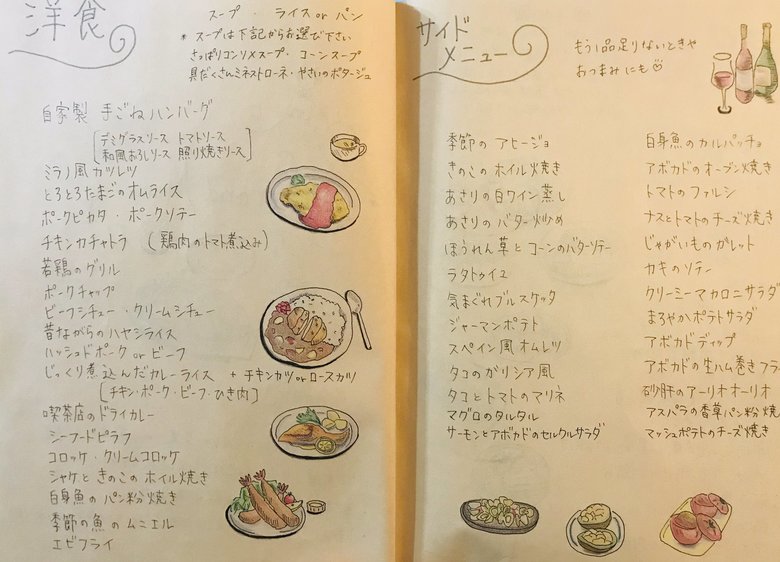 洋食
スープ ・ ライス or パン
* スープは下記からお選び下さい
さっぱりコンソメスープ・コーンスープ
具だくさんミネストローネ・やさいのポタージュ
自家製 手ごねハンバーグ
デミグラスソース トマトソース
和風おろしソース 照り焼きソース
ミラノ風カツレツ
とろとろたまごのオムライス
ポークピカタ ・ ポークソテー
チキンカチャトラ (鶏肉のトマト煮込み)
若鶏のグリル
ポークチャップ
ビーフシチュー・クリームシチュー
昔ながらのハヤシライス
ハッシュドポーク or ビーフ
じっくり煮込んだカレーライス + チキンカツ or ロースカツ
[チキン・ポーク・ビーフ・ひき肉]
喫茶店のドライカレー
シーフードピラフ
コロッケ・クリームコロッケ
シャケときのこのホイル焼き
白身魚のパン粉焼き
季節の魚のムニエル
エビフライ
サイドメニュー
もう1品足りないときや
おつまみにも♡
季節の アヒージョ
きのこの ホイル焼き
あさりの白ワイン蒸し
あさりの バター炒め
ほうれん草とコーンのバターソテー
ラタトゥイユ
気まぐれブルスケッタ
ジャーマンポテト
スペイン風オムレツ
タコのガリシア風
タコとトマトのマリネ
マグロのタルタル
サーモンとアボカドのセルクルサラダ
白身魚のカルパッチョ
アボカドのオーブン焼き
トマトのファルシ
ナスとトマトのチーズ焼き
じゃがいものガレット
カキのソテー
クリーミーマカロニサラダ
まろやかポテトサラダ
アボカドディップ
アボカドの生ハム巻きフラ
砂肝のアーリオオーリオ
アスパラの香草パン粉焼
マッシュポテトのチーズ焼き